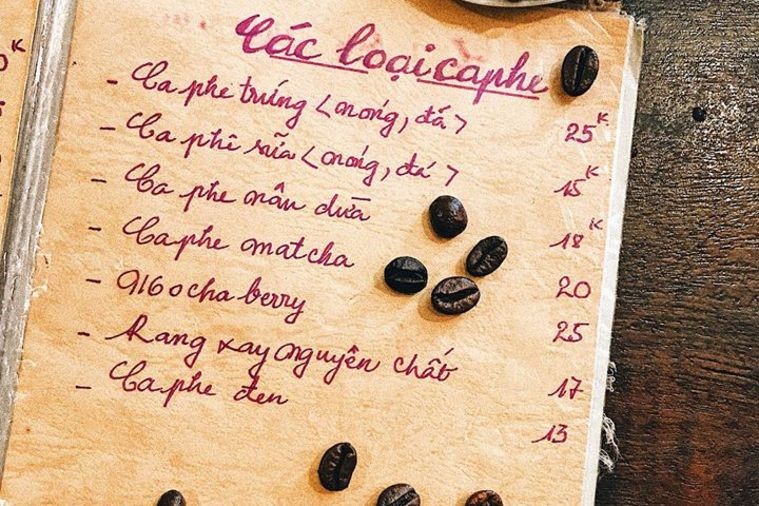 Các loại caphe
- Ca phe trứng <nóng, đá> 25K
- Ca phê sữa <nóng, đá> 15K
- Ca phe nâu dừa 18K
- Ca phe matcha 20
- Mocha berry 25
- Rang xay nguyên chất 17
- Ca phe đen 13